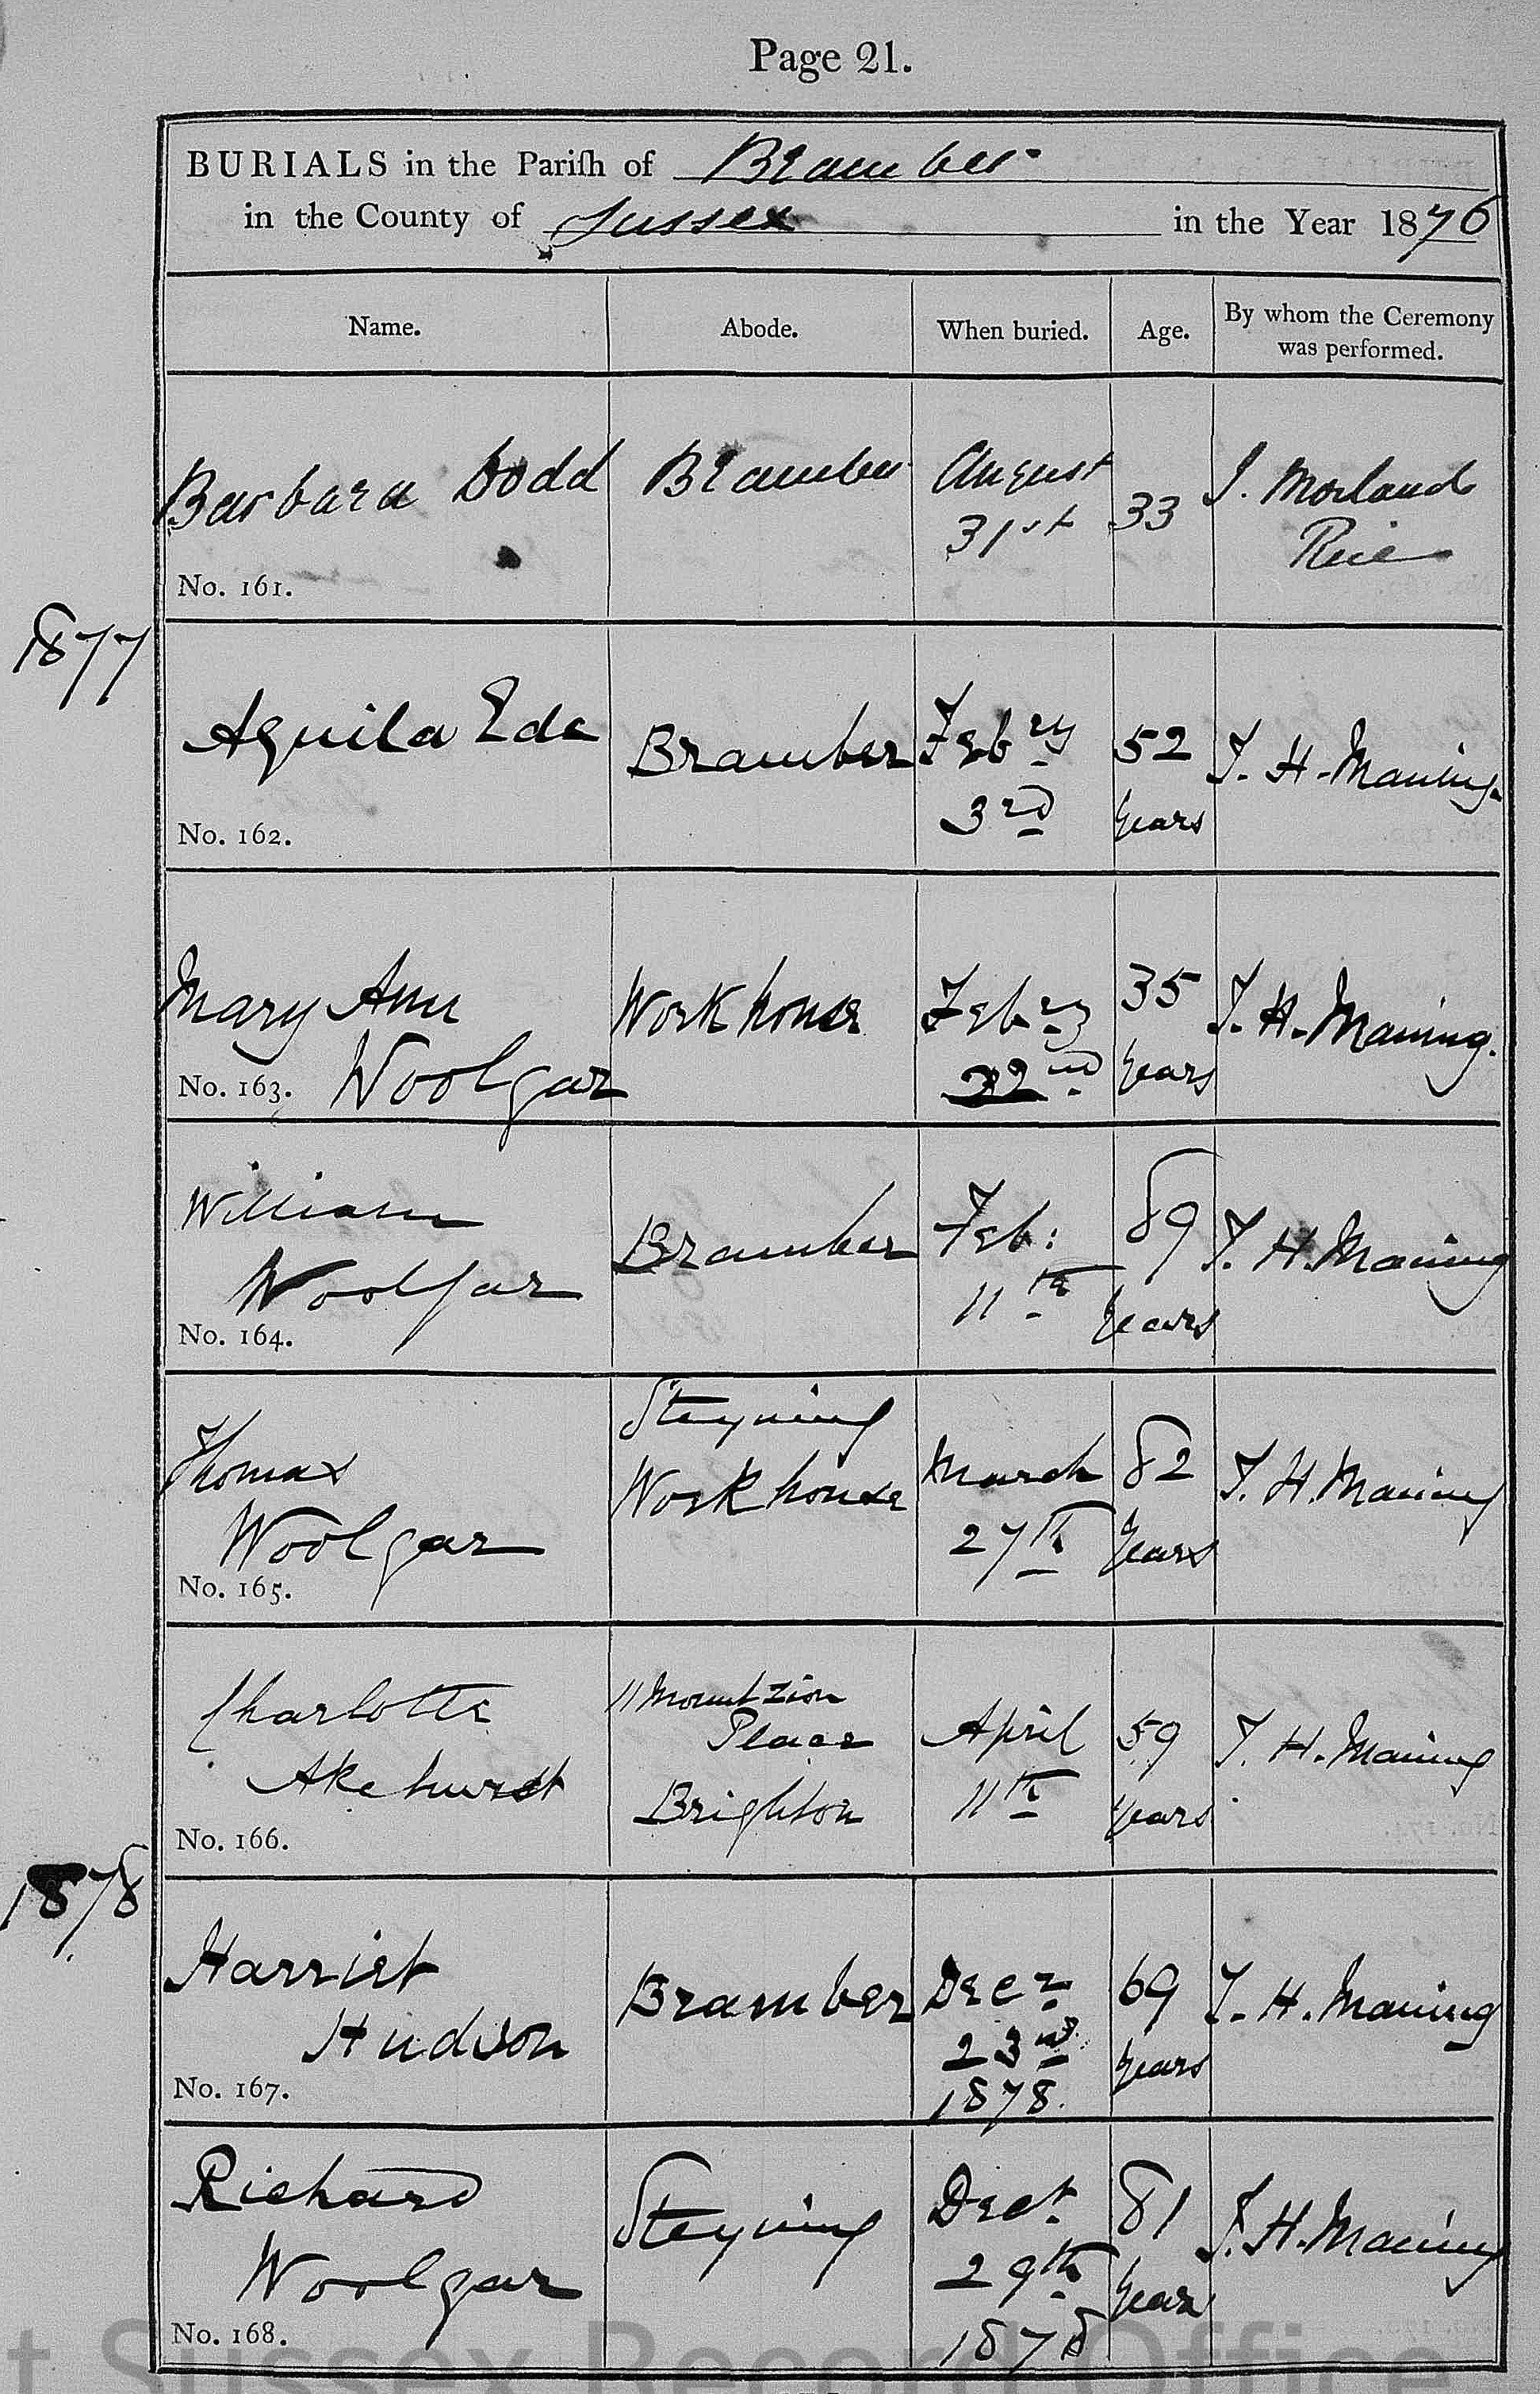 Page 21.
BURIALS in the Pariſh of Bramber
in the County of Sussex in the Year 1876
Name. Abode. When buried. Age. By whom the Ceremony was performed.
Barbara Dodd
No. 161.
Bramber
August
31st
33
J. Morland
Rice
1877
Aquila Ede
No. 162.
Bramber
Febry
3rd
52
years
T. H. Maning.
Mary Ann
Woolgar
No. 163.
Workhouse
Febry
22nd
35
years
T. H. Maning.
William
Woolgar
No. 164.
Bramber
Feb:
11th
89
years
T. H. Maning
Thomas
Woolgar
No. 165.
Steyning
Workhouse
March
27th
82
years
T. H. Maning
Charlotte
Akehurst
No. 166.
11 Mount Zion
Place
Brighton
April
11th
59
years
T. H. Maning
1878
Harriet
Hudson
No. 167.
Bramber
Decr
23rd
1878.
69
years
T. H. Maning
Richard
Woolgar
No. 168.
Steyning
29th
1878
81
years
T. H. Maning
t Sussex Record Office